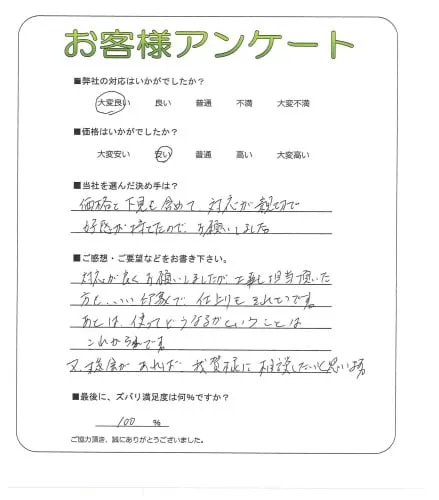 お客様アンケート
■弊社の対応はいかがでしたか?
大変良い 良い 普通 不満 大変不満
■価格はいかがでしたか?
大変安い 安い 普通 高い 大変高い
■当社を選んだ決め手は?
価格と下見も含めて、対応が親切で
好感が持てたので、お願いしました
■ご感想・ご要望などをお書き下さい。
対応が良くお願いしましたが工事も担当頂いた
方も、いい印象で、仕上りもきれいです
あとは、使ってどうなるかということは
これからです
又、機会があれば、 様に相談したいと思います
■最後に、ズバリ満足度は何%ですか?
100 %
ご協力頂き、誠にありがとうございました。